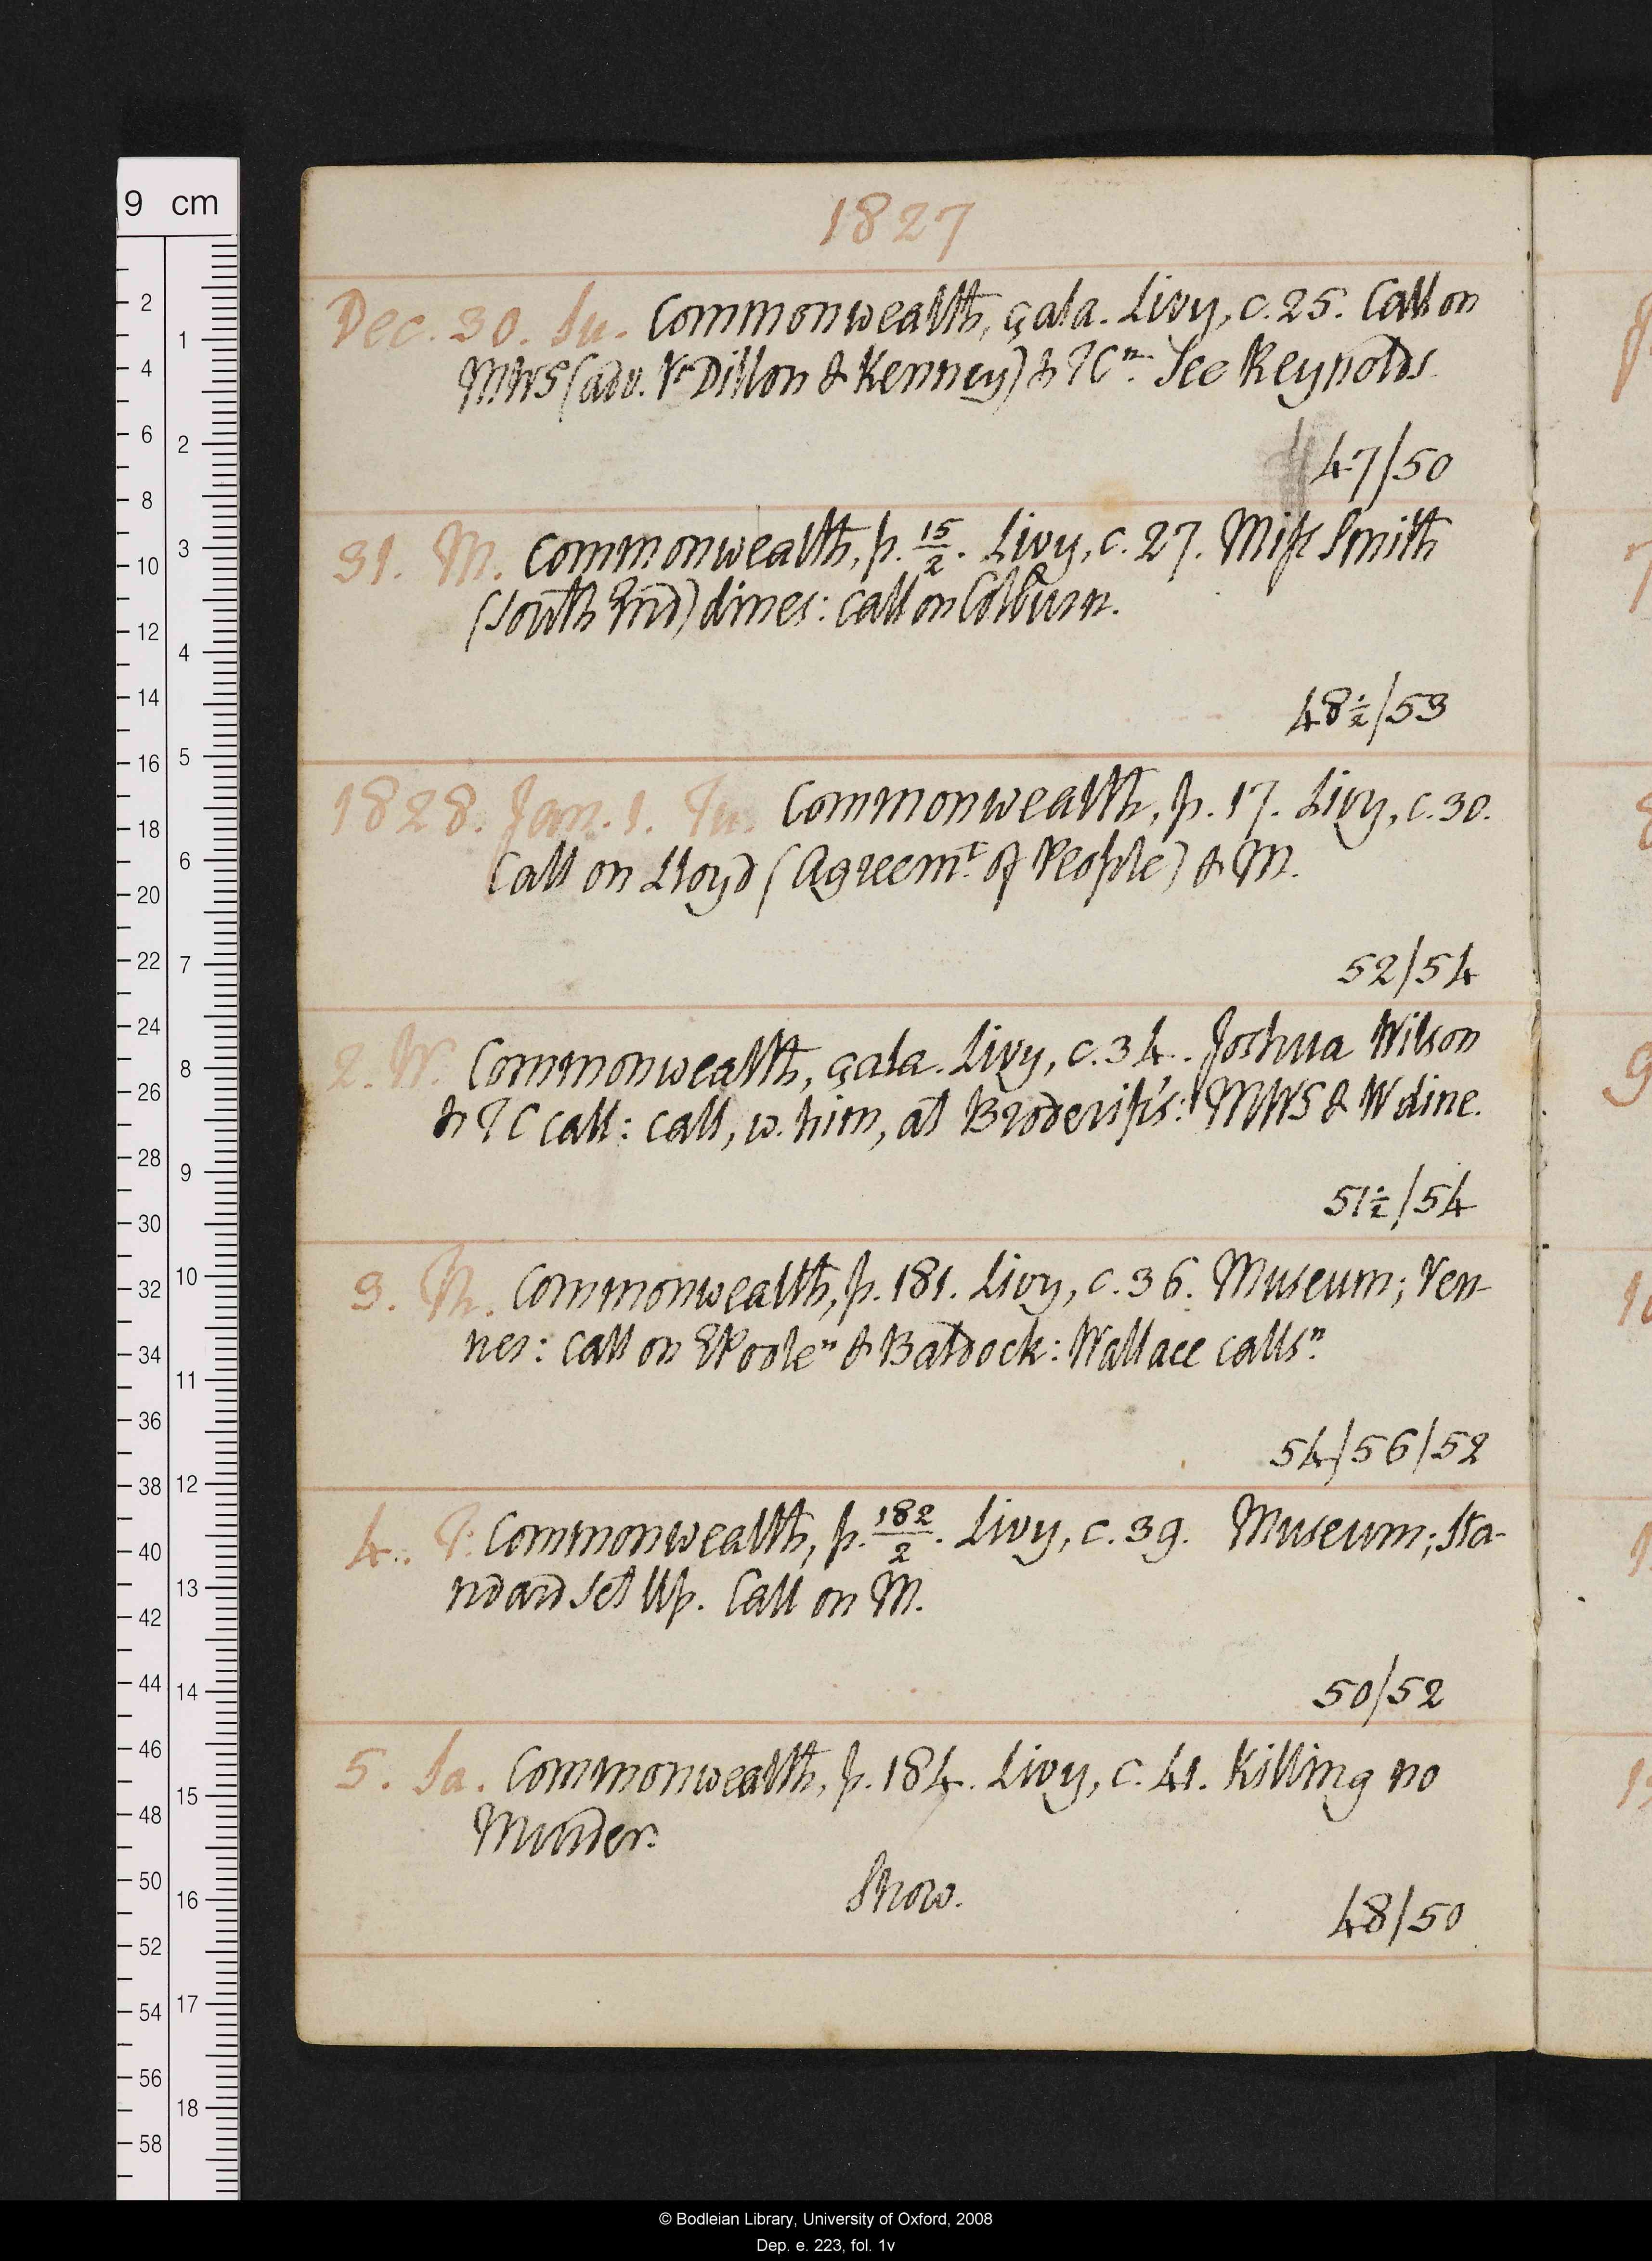 9 cm
1827
Dec. 30. Su. Commonwealth, çala. Livy, c. 25. Call on
MWS (adv. Vt Dillon & Kenney) & TCn. See Reynolds.
47/50
31. M. Commonwealth, p. 15/2. Livy, c. 27. Miss Smith
(South End) dines: call on Colburn.
48½/53
1828. Jan. 1. Tu. Commonwealth, p. 17. Livy, c. 30.
Call on Lloyd (Agreemt. of People) & M.
52/54
2. W. Commonwealth, çala. Livy, c. 34. Joshua Wilson
& TC call: call, w. him, at Broderip's: MWS & W dine.
51½/54
3. Th. Commonwealth, p. 181. Livy, c. 36. Museum; Ven-
nes: call on EPoole n & Baldock: Wallace calls n.
54/56/52
4. F. Commonwealth, p. 182/2. Livy, c. 39. Museum; Sta-
ndard Set Up. Call on M.
50/52
5. Sa. Commonwealth, p. 184. Livy, c. 41. Killing no
Murder.
Snow.
48/50
© Bodleian Library, University of Oxford, 2008
Dep. e. 223, fol. 1v